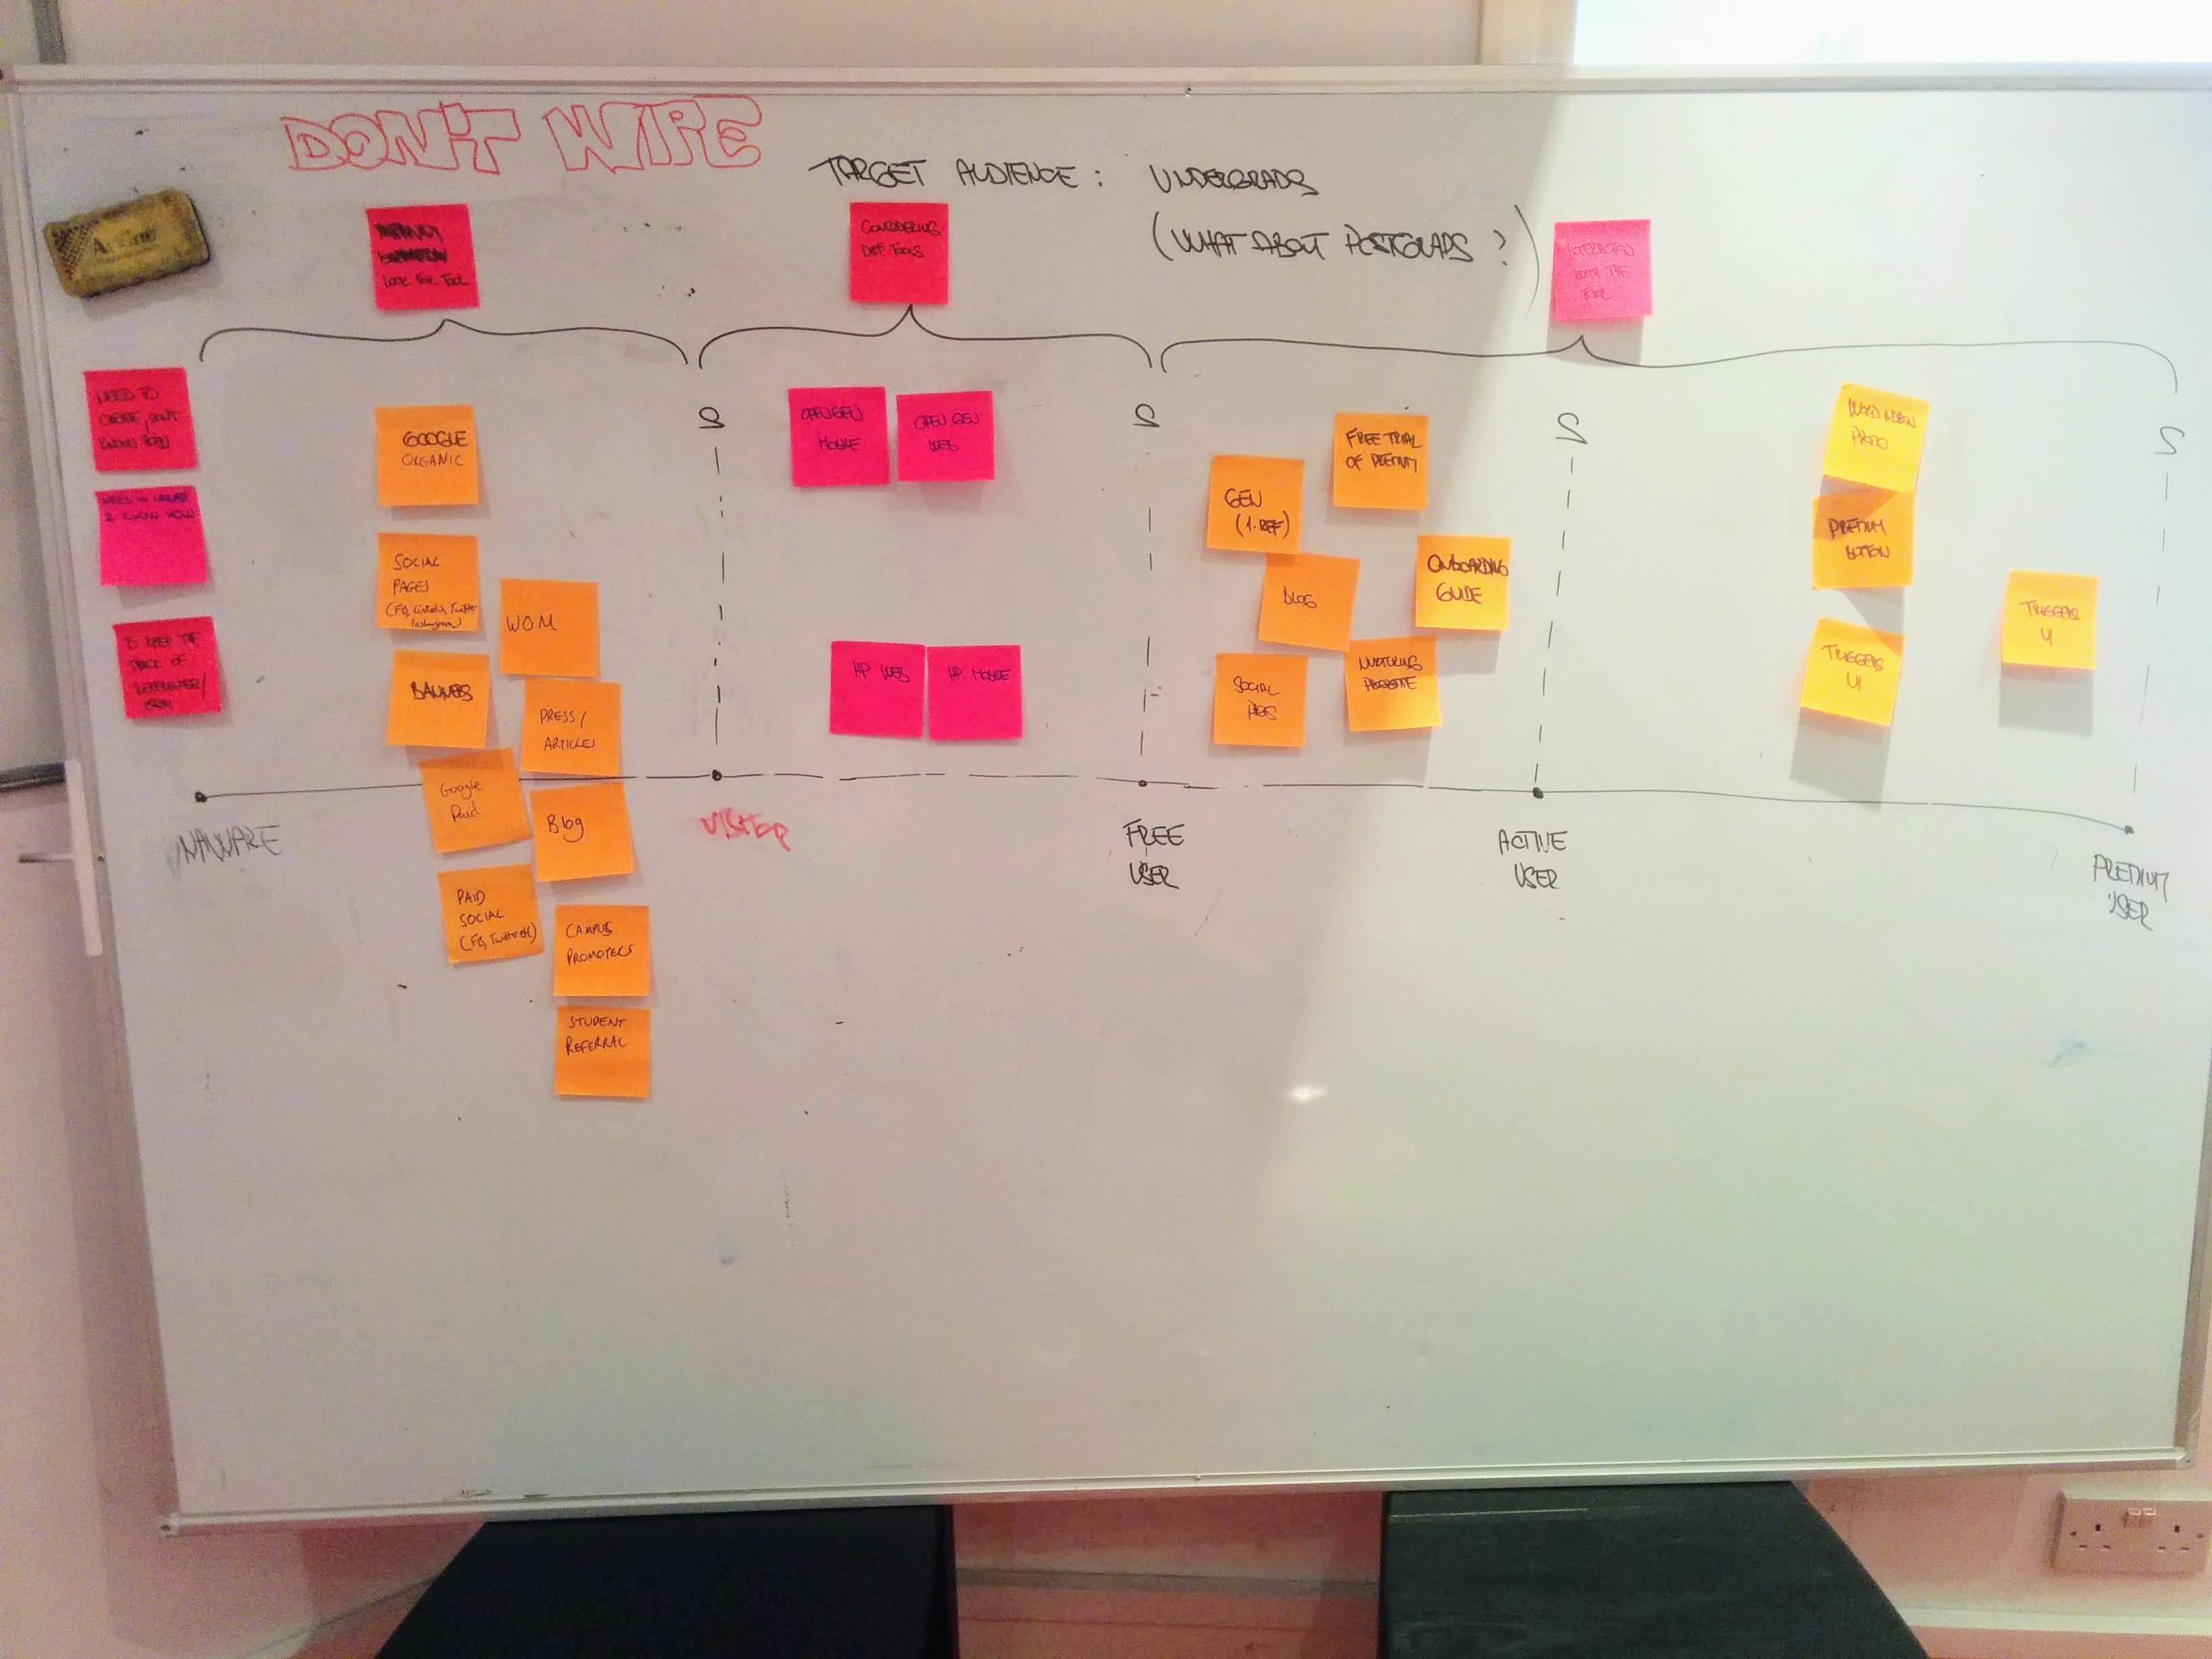 DON'T WIPE
TARGET AUDIENCE: UNDERGRADS
(WHAT ABOUT POSTGRADS?)
LOOK FOR TOOL
CONSIDERING
DIFF TOOLS
INTERACTION
WITH THE
TOOL
NEED TO
CREATE, DON'T
KNOW HOW
NEED TO CREATE
& KNOW HOW
TO KEEP THE
TRACK OF
GOOGLE
ORGANIC
SOCIAL
PAGES
(FB, LinkedIn, Twitter
WOM
BANNERS
PRESS/
ARTICLES
Google
Paid
Blog
PAID
SOCIAL
(FB, Twitter etc)
CAMPUS
PROMOTERS
STUDENT
REFERRAL
OPEN GEN
MOBILE
OPEN GEN
WEB
HP WEB
HP MOBILE
FREE TRIAL
OF PREMIUM
GEN
(1. REF)
BLOG
ONBOARDING
GUIDE
SOCIAL
PAGES
NURTURING
WORD ADDIN
PROMO
PREMIUM
BUTTON
TRIGGERS
UI
TRIGGERS
UI
UNAWARE
VISITOR
FREE
USER
ACTIVE
USER
PREMIUM
USER